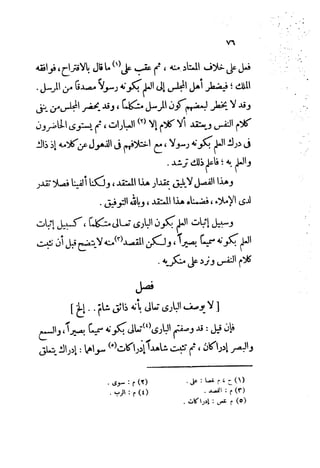 ٧٦
فعل على خلاف المعتاد منه ، ثم عقب على (١) ما قال بالاقتراح ، فوافقه
الملك ؛ فيضطر أهل المجلس إلى العلم بكونه رسولاً مصدقًا من المرسل .
وقد لا يخطر لبعضهم كون المرسل متكلمًا ، وقد يحضر المجلس من ينفى
كلام النفس ويعتقد ألا كلام إلا (٢) العبارات ، ثم يستوى الحاضرون
فى درك العلم بكونه رسولا ، مع اختلافهم فى الذهول عن كلامه إذ ذاك
والعلم به ؛ فاعلم ذلك ترشد .
وهذا الفصل لا يليق بمقدار هذا المعتقد ، ولكنا ألفينا فصلا تقدر
لدى الإملاء ، فضمناه هذا المعتقد ، وبالله التوفيق .
وسبيل إثبات العلم بكون البارى تعالى متكلمًا ، كسبيل إثبات
العلم بكونه سميعًا بصيرًا ، ولكن المقصد (٣) منه لا يتضح قبل أن نثبت
كلام النفس ونرد على منكريه .
فصل
[ لا يوصف البارى تعالى بأنه ذائق شام . . إلخ ]
فإن قيل : قد وصفتم البارى (٤) تعالى بكونه سميعًا بصيرًا ، والسمع
والبصر إدراكان ، ثم ثبت شاهدًا إدراكات (٥) سواهما : إدراك يتعلق
(١) ح ، م نقصا : على .
(٢) م : سوى .
(٣) م : القصد .
(٤) م : الرب .
(٥) م نقص : إدراكات .